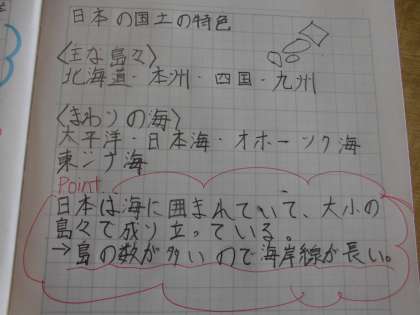 日本の国土の特色
〈主な島々〉
北海道・本州・四国・九州
〈まわりの海〉
大平洋・日本海・オホーツク海
東シナ海
Point
日本は海に囲まれていて、大小の
島々で成り立っている。
→島の数が多いので海岸線が長い。